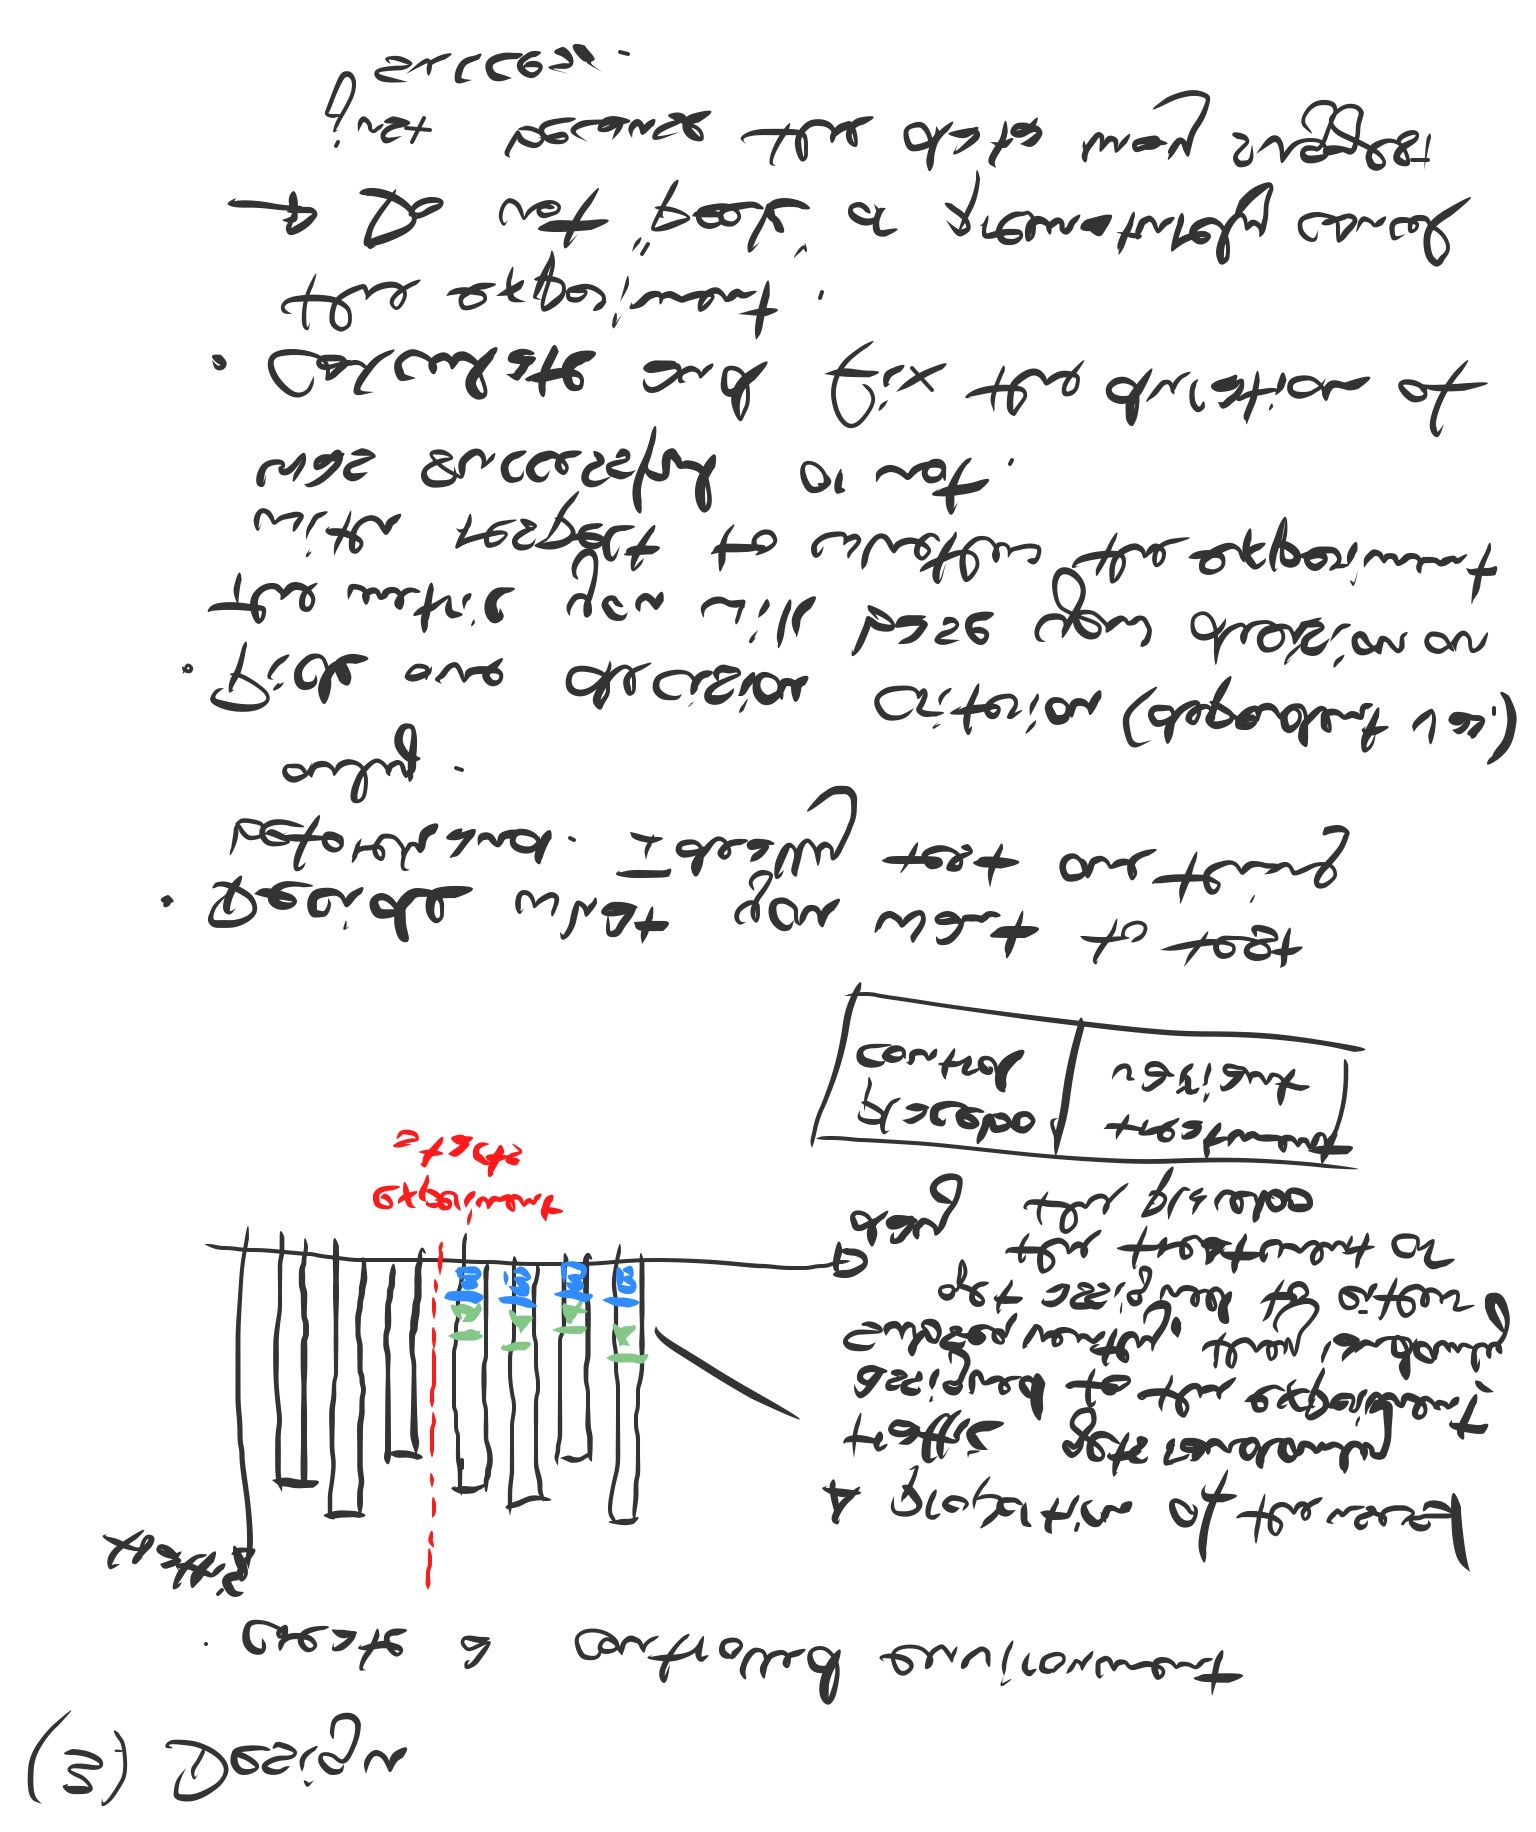 (3) Design
· create a controlled environment
traffic
A proportion of the user
traffic gets randomly
assigned to the experiment.
Subseqently, they randomly
get assigned to either
the treatment or
the placebo
A A A A
B B B B
day
experiment
starts
placebo treatment
control variant
· Decide what you want to test
beforehand. Ideally test one thing
only.
· Pick one decision criterion (dependent var.)
The metric you will base your decision on
with respect to whether the experiment
was successful or not.
· Calculate and fix the duration of
the experiment.
→ Do not "peek" or prematurely cancel
just because the data may suggest
success.